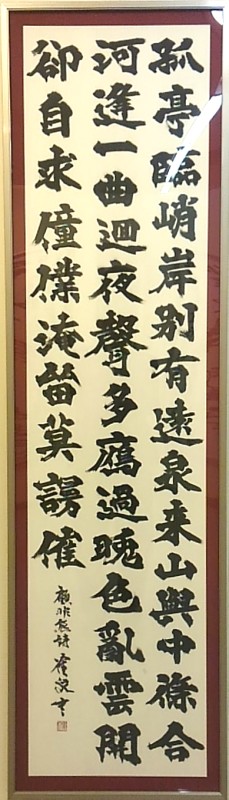 孤亭臨峭岸別有遠泉来山與中條合
河逢一曲迴夜聲多鴈過晚色亂雲開
卻自求僮僕淹留莫謾催
顧非熊詩 書